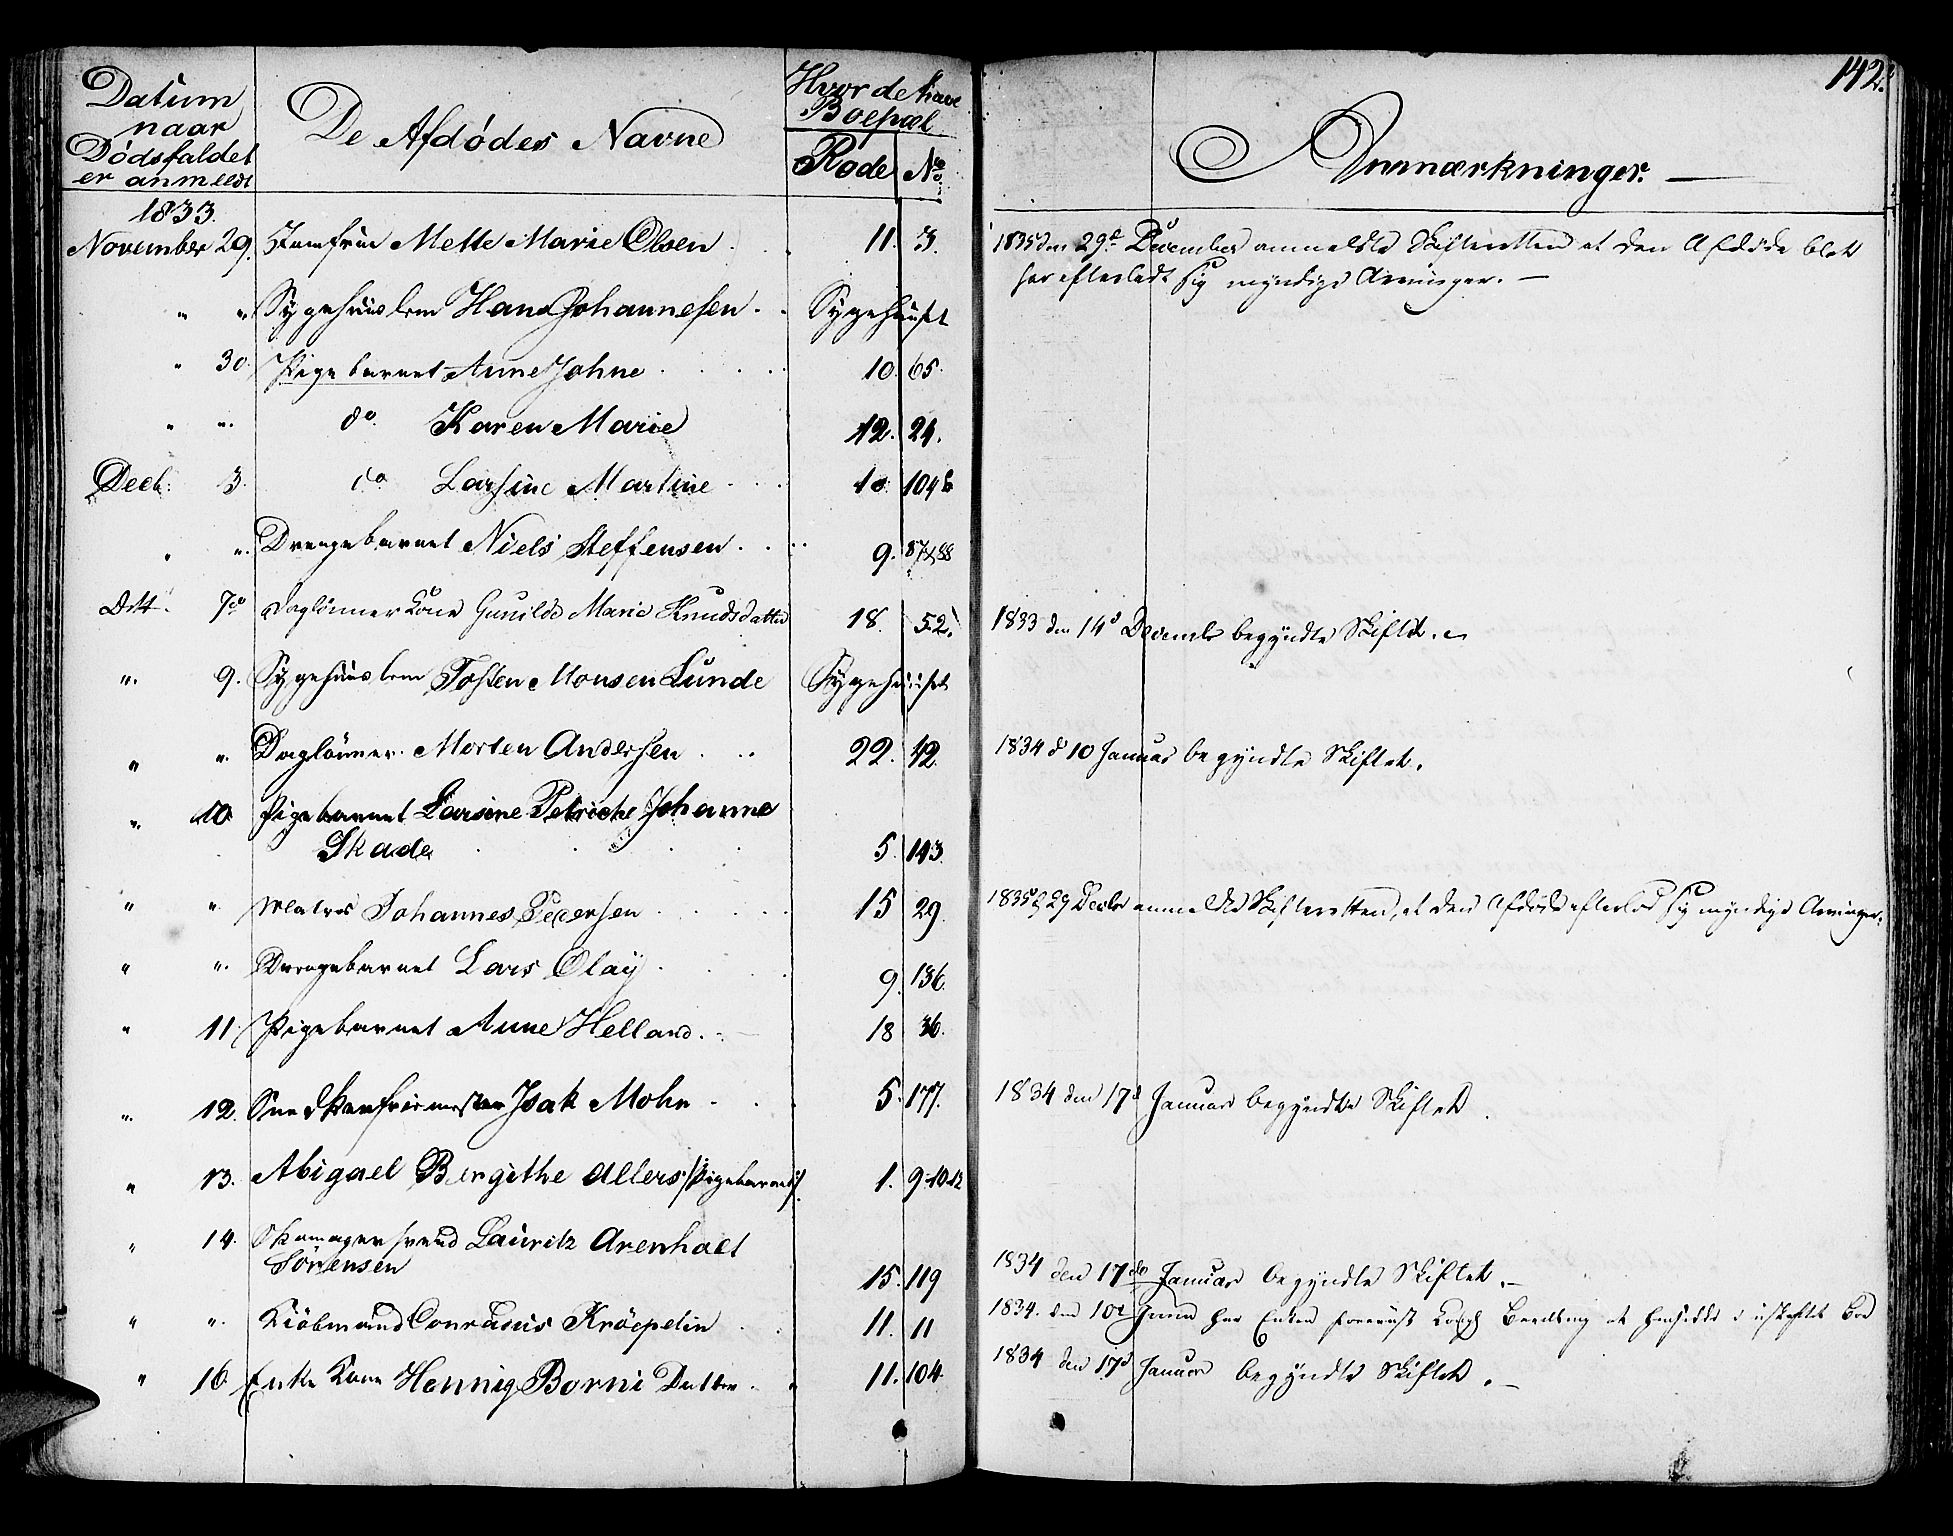 142.
Datum naar Dødsfaldet er anmeldt
De Afdødes Navne
Hvor de have Boepæl
Rode No
Anmærkninger.
1833.
November 29. Jomfrue Mette Marie Olsen 11. 3. 1835 den 29de December anmeldte Skifteretten at den Afdøde blot
har efterladt sig myndige Arvinger. —
" " Sygehuuslem Hans Johannesen Sygehuuset
" 30. Pigebarnet Anne Johne 10. 65.
" " do Karen Marie 12. 24.
Decb. 3. do Larsine Martine 10. 104b
" " Drengebarnet Niels Steffensen 9. 87 & 88
Ditt. 7de Daglønner Kone Gunilde Marie Knudsdatter 18. 52. 1833 den 14d December begyndte Skiftet.
" 9. Sygehuuslem Tosten Monsen Lunde Sygehuuset
" " Daglønner Morten Andersen 22. 42. 1834 d 10 Januar begyndte Skiftet.
" 10. Pigebarnet Larsine Petriche Johanne
Skade 5. 143.
" " Matros Johannes Pedersen 15 29. 1835 d 29 Decbr anmeldte Skifteretten, at den Afdøde efterlod sig myndige Arvinger.
" " Drengebarnet Lars Olay 9. 136.
" 11. Pigebarnet Anne Helland. 18 36.
" 12. Snedkerfriemester Isak Mohn 5. 177. 1834 den 17d Januar begyndte Skiftet.
" 13. Abigael Bergithe Allers /Pigebarnet/. 1. 9-10-12
" 14. Skomagersvend Lauritz Arenholt
Sörensen 15. 119 1834 den 17de Januar begyndte Skiftet. —
" " Kiöbmand Conradus Kröepelin 11. 11 1834. den 10d har Enken foreviist Kongl Bevilling at hensidde i uskiftet Boe
" 16. Enke Kone Hennig Borni Datter 11. 104. 1834 den 17d Januar begyndte Skiftet. —